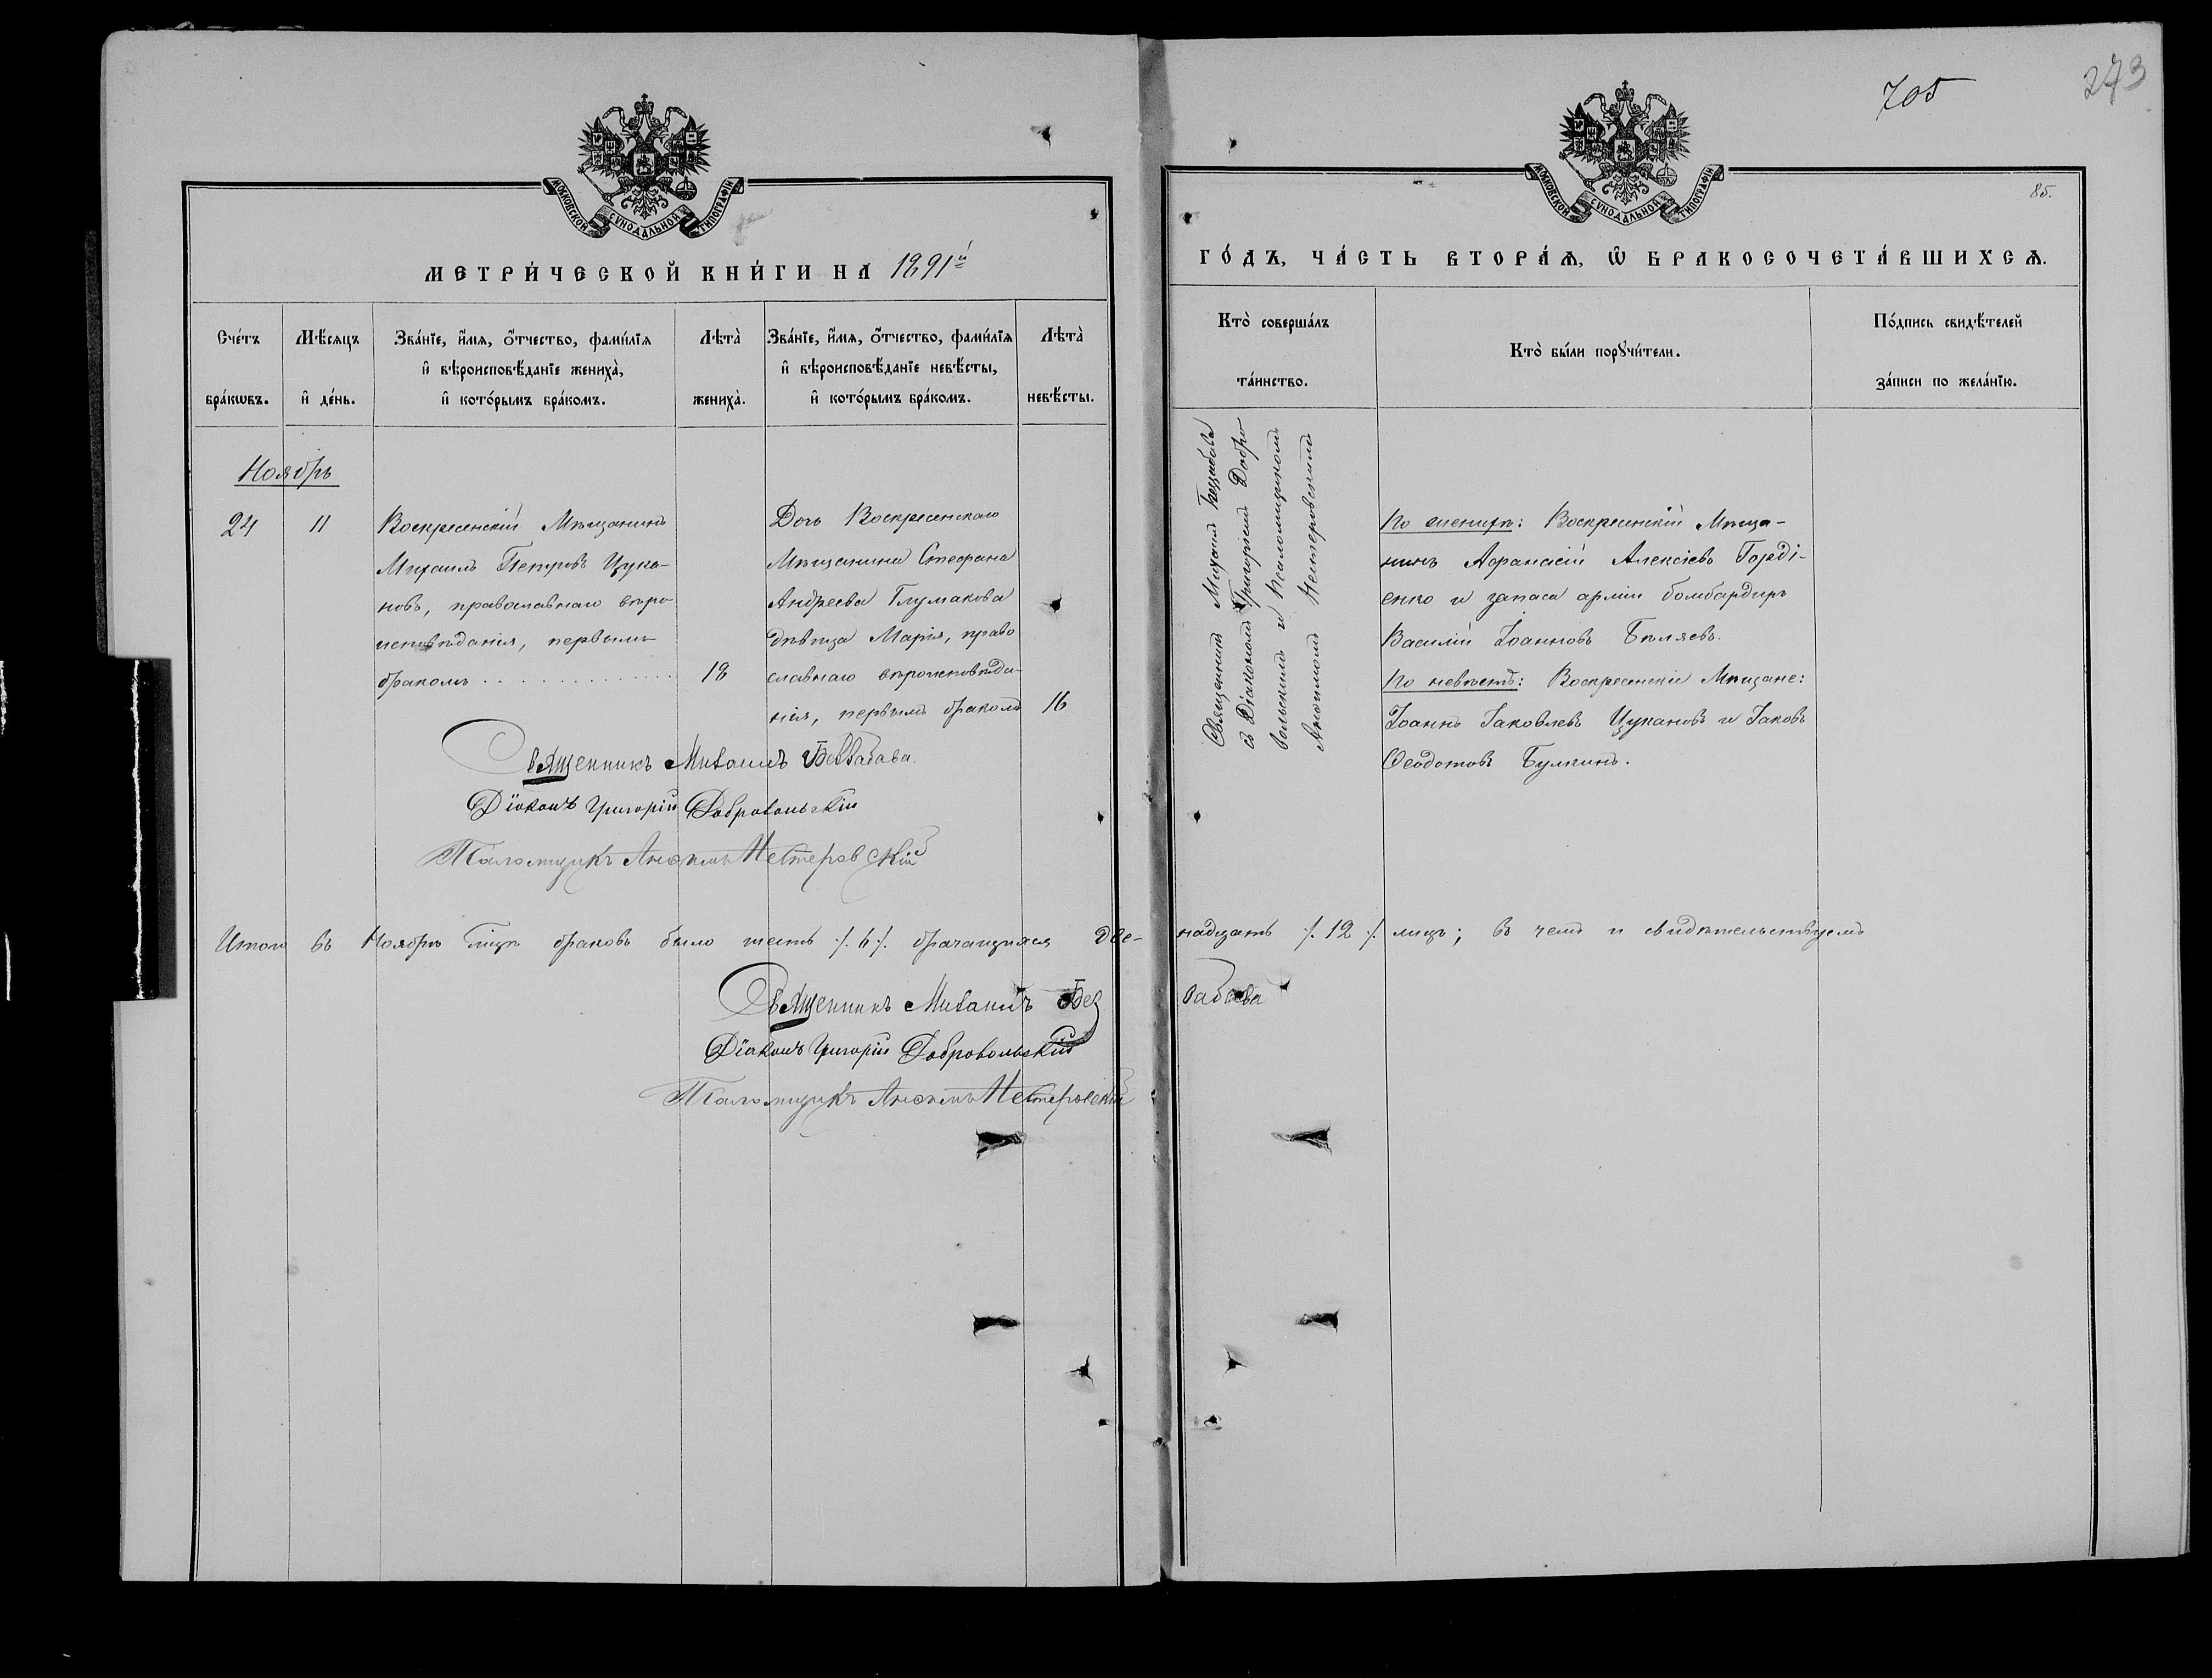 705
273
85.
МОСКОВСКОЙ СУНОДАЛЬНОЙ ТИПОГРАФІИ
МОСКОВСКОЙ СУНОДАЛЬНОЙ ТИПОГРАФІИ
МЕТРИ́ЧЕСКОЙ КНИ́ГИ НА 1891й
ГО́ДЪ, ЧА́СТЬ ВТОРА́Ѧ, Ѡ҆ БРАКОСОЧЕТА́ВШИХСѦ.
Сче́тъ
бра́кѡвъ.
Мѣ́сяцъ
и҆ де́нь.
Зва́нїе, и҆́мя, ѻ҆́тчество, фами́лїя
и҆ вѣроисповѣ́данїе жениха̀,
и҆ кото́рымъ бра́комъ.
Лѣта̀
жениха̀.
Зва́нїе, и҆́мя, ѻ҆́тчество, фами́лїя
и҆ вѣроисповѣ́данїе невѣ́сты,
и҆ кото́рымъ бра́комъ.
Лѣта̀
невѣ́сты.
Кто̀ соверша́лъ
та́инство.
Кто̀ бы́ли порꙋчи́тели.
По́дпись свидѣ́телей
за́писи по жела́нїю.
Ноябрь
24
11
Воскресенскій Мѣщанинъ
Михаилъ Петровъ Цука-
новъ, православнаго вѣро
исповѣданія, первымъ
бракомъ . . . . . . . . . . . . . .
18
Дочь Воскресенскаго
Мѣщанина Стефана
Андреева Глумакова
дѣвица Марія, право
славнаго вѣроисповѣда-
нія, первымъ бракомъ
16
Священникъ Михаилъ Беззабава
съ Діакономъ Григоріемъ Добро
вольскимъ и Псаломщикомъ
Нестеровскимъ
По женихѣ: Воскресенскій Мѣща-
нинъ Афанасій Алексіевъ Горді-
енко и запаса арміи бомбардиръ
Василій Іоанновъ Бѣляевъ.
По невѣстѣ: Воскресенскіе Мѣщане:
Іоаннъ Іаковлевъ Цукановъ и Іаковъ
Ѳеодотовъ Булкинъ.
Священникъ Михаилъ Беззабава.
Діаконъ Григорій Добровольскій
Псаломщикъ Нестеровскій
Итого въ Ноябрѣ мцѣ браковъ было шесть /. 6 /. брачащихся две-надцать /. 12 /. лицъ; въ чемъ и свидѣтельствуемъ
Священникъ Михаилъ Беззабава
Діаконъ Григорій Добровольскій
Псаломщикъ Нестеровскій